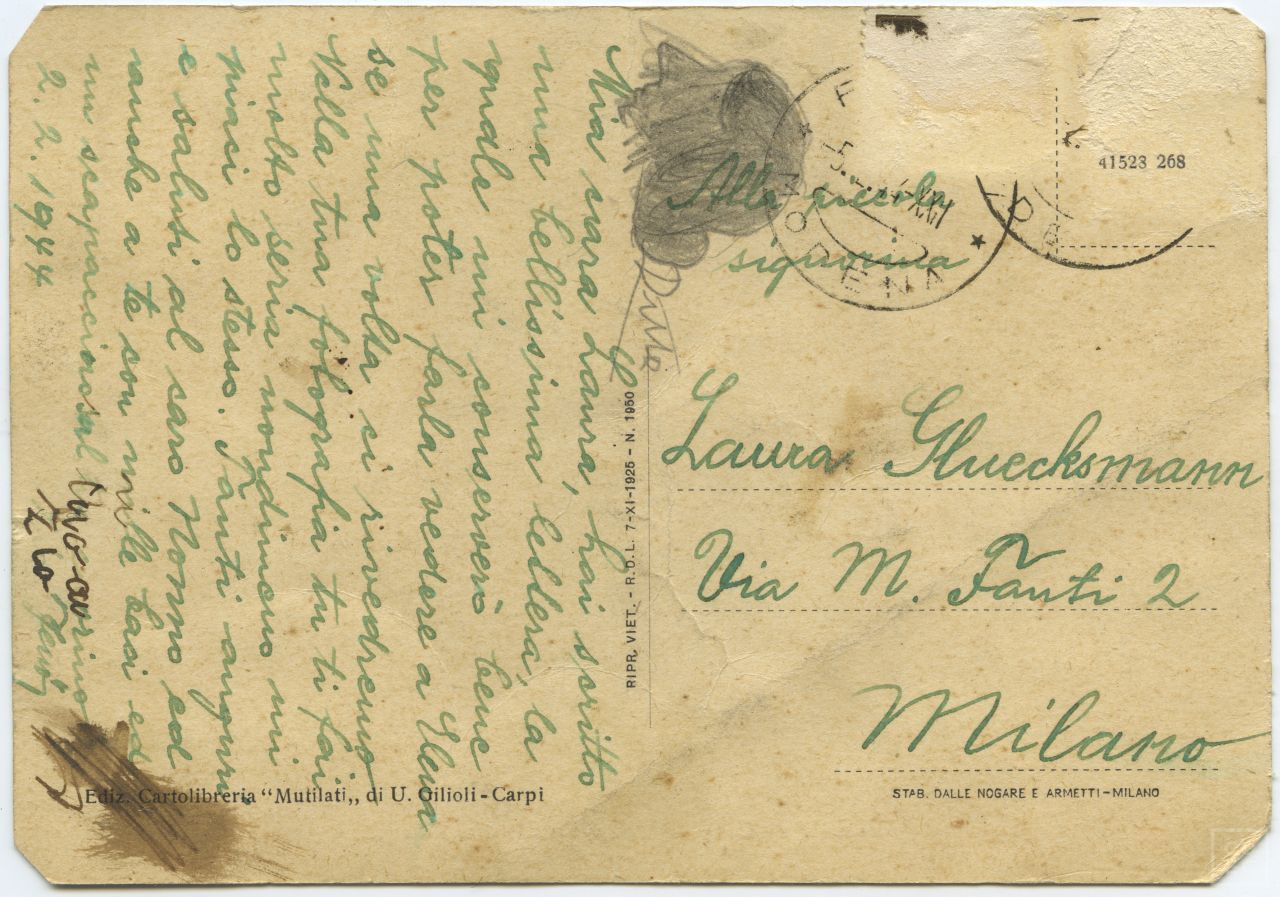 Mia cara Laura, hai scritto
una bellissima lettera, la
quale mi conserverò bene
per poter farla vedere a Elena
se una volta ci rivedremo
Nella tua fotografia tu ti fai
molto seria nondimeno mi
piaci lo stesso. Tanti auguri
e saluti al caro Nonno ed
anche a te con mille baci ed
un
2. 2. 1944
Zio
Alla piccola
signorina
Laura Gluecksmann
Via M. Fanti 2
Milano
MODENA
41523 268
RIPR. VIET. - R.D.L. 7-XI-1925 - N. 1950
Ediz. Cartolibreria "Mutilati„ di U. Gilioli - Carpi
STAB. DALLE NOGARE E ARMETTI - MILANO